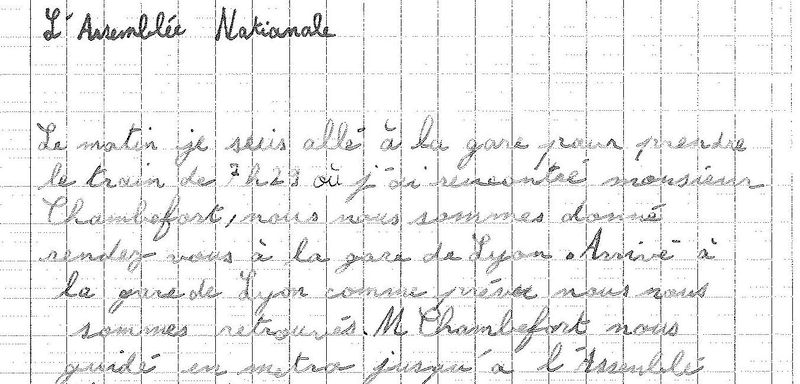 L'Assemblée Nationale
Le matin je suis allé à la gare pour prendre
le train de 7h29 où j'ai rencontré monsieur
Chambefort, nous nous sommes donné
rendez-vous à la gare de Lyon. Arrivé à
la gare de Lyon comme prévu nous nous
sommes retrouvés. M Chambefort nous
guidé en metro jusqu'a l'Assemblé